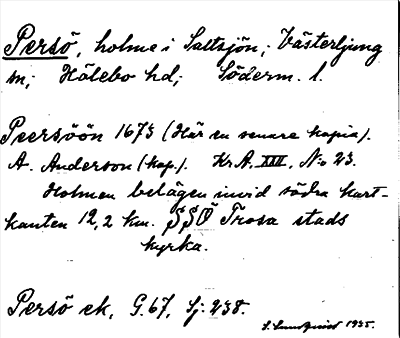 Persö, holme i Saltsjön; Västerljung
sn; Hölebo hd; Söderm. l.
Peersöön 1673 (Här en senare kopia).
A. Anderson (kop.). Kr A. XIII, No 23.
Holmen belägen invid södra kart-
kanten 12,2 km. SSÖ Trosa stads
kyrka.
Persö ek, G. 67, Sj: 238.
S. Lundqvist 1935.